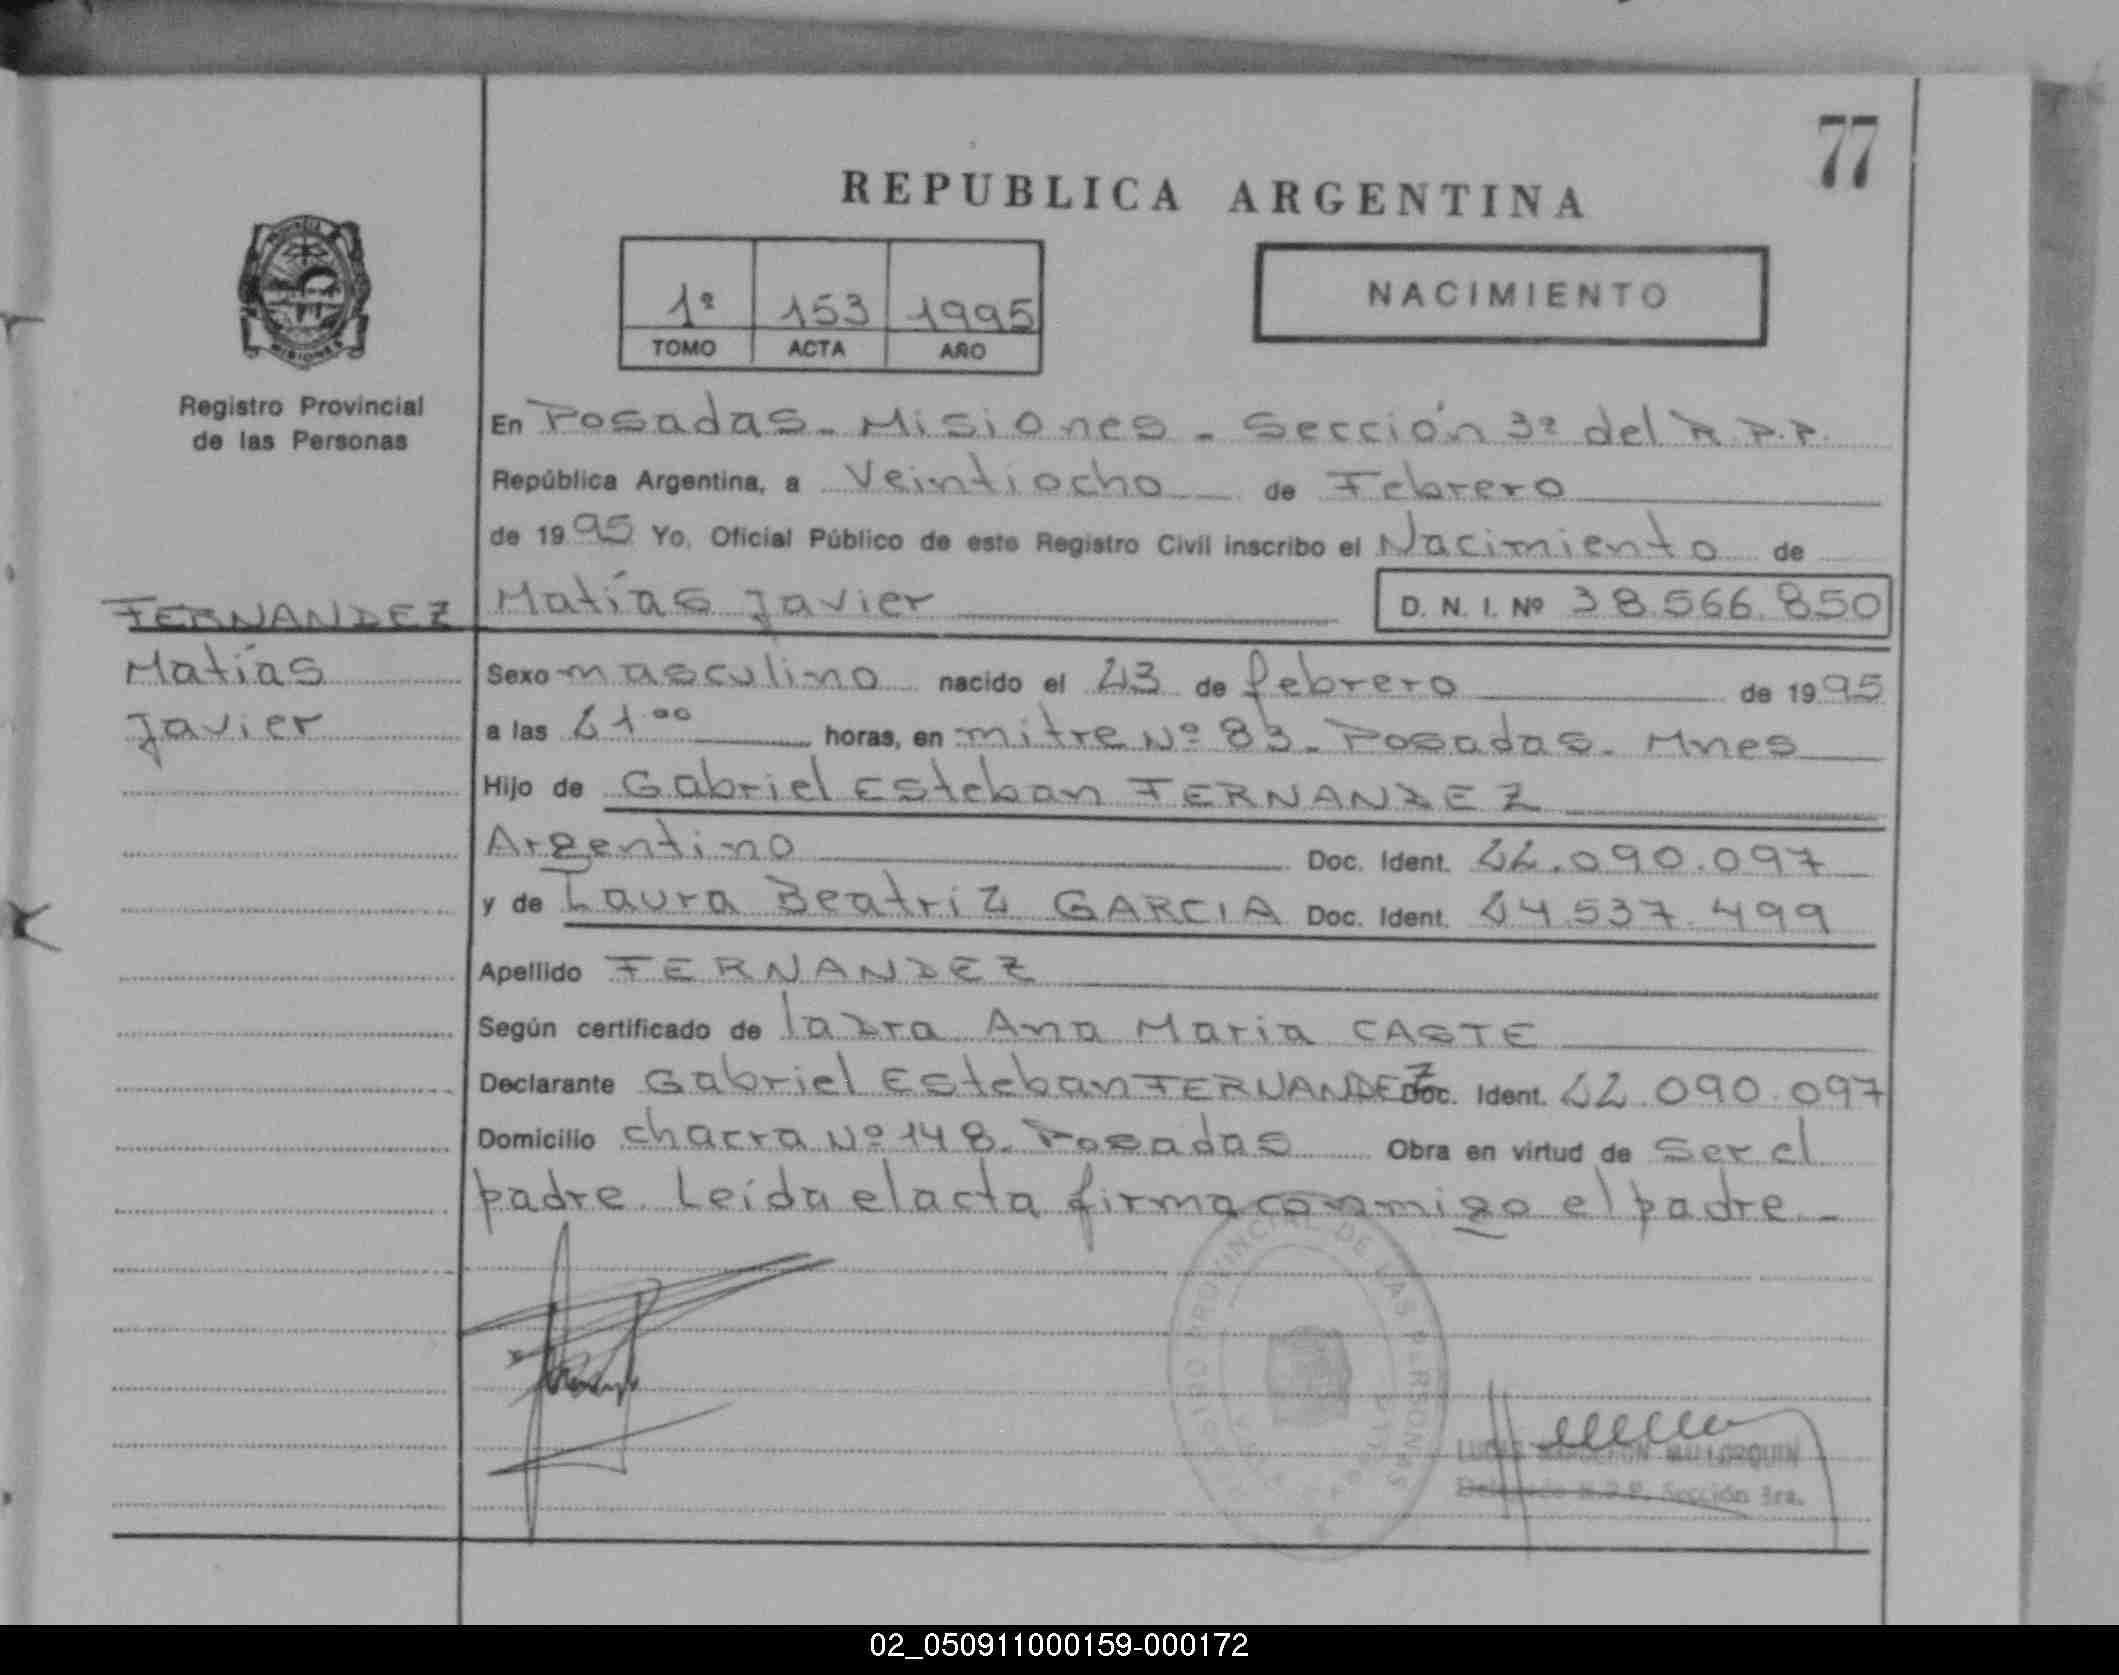 77
REPUBLICA ARGENTINA
1º 153 1995
TOMO ACTA AÑO
NACIMIENTO
PROVINCIA
MISIONES
Registro Provincial
de las Personas
En Posadas - Misiones - Sección 3ª del R.P.P.
República Argentina, a Veintiocho de Febrero
de 1995 Yo, Oficial Público de este Registro Civil inscribo el Nacimiento de
Matías Javier D. N. I. Nº 38.566.850
FERNANDEZ
Matías
Javier
Sexo masculino nacido el 23 de febrero de 1995
a las 21⁰⁰ horas, en mitre Nº 83 - Posadas - Mnes
Hijo de Gabriel Esteban FERNANDEZ
Argentino Doc. Ident. 22.090.097
y de Laura Beatriz GARCIA Doc. Ident. 24.537.499
Apellido FERNANDEZ
Según certificado de la Dra Ana Maria CASTE
Declarante Gabriel Esteban FERNANDEZ Doc. Ident. 22.090.097
Domicilio chacra Nº 148 - Posadas Obra en virtud de ser el
padre. Leída el acta firma conmigo el padre -
PROVINCIAL DE LAS PERSONAS
MALLORQUIN
Delegado R.P.P. Sección 3ra.
02_050911000159-000172